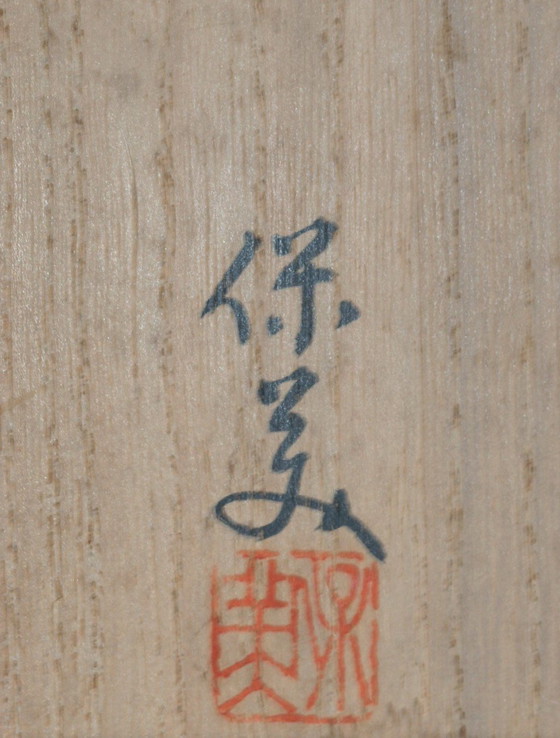 保美
保美